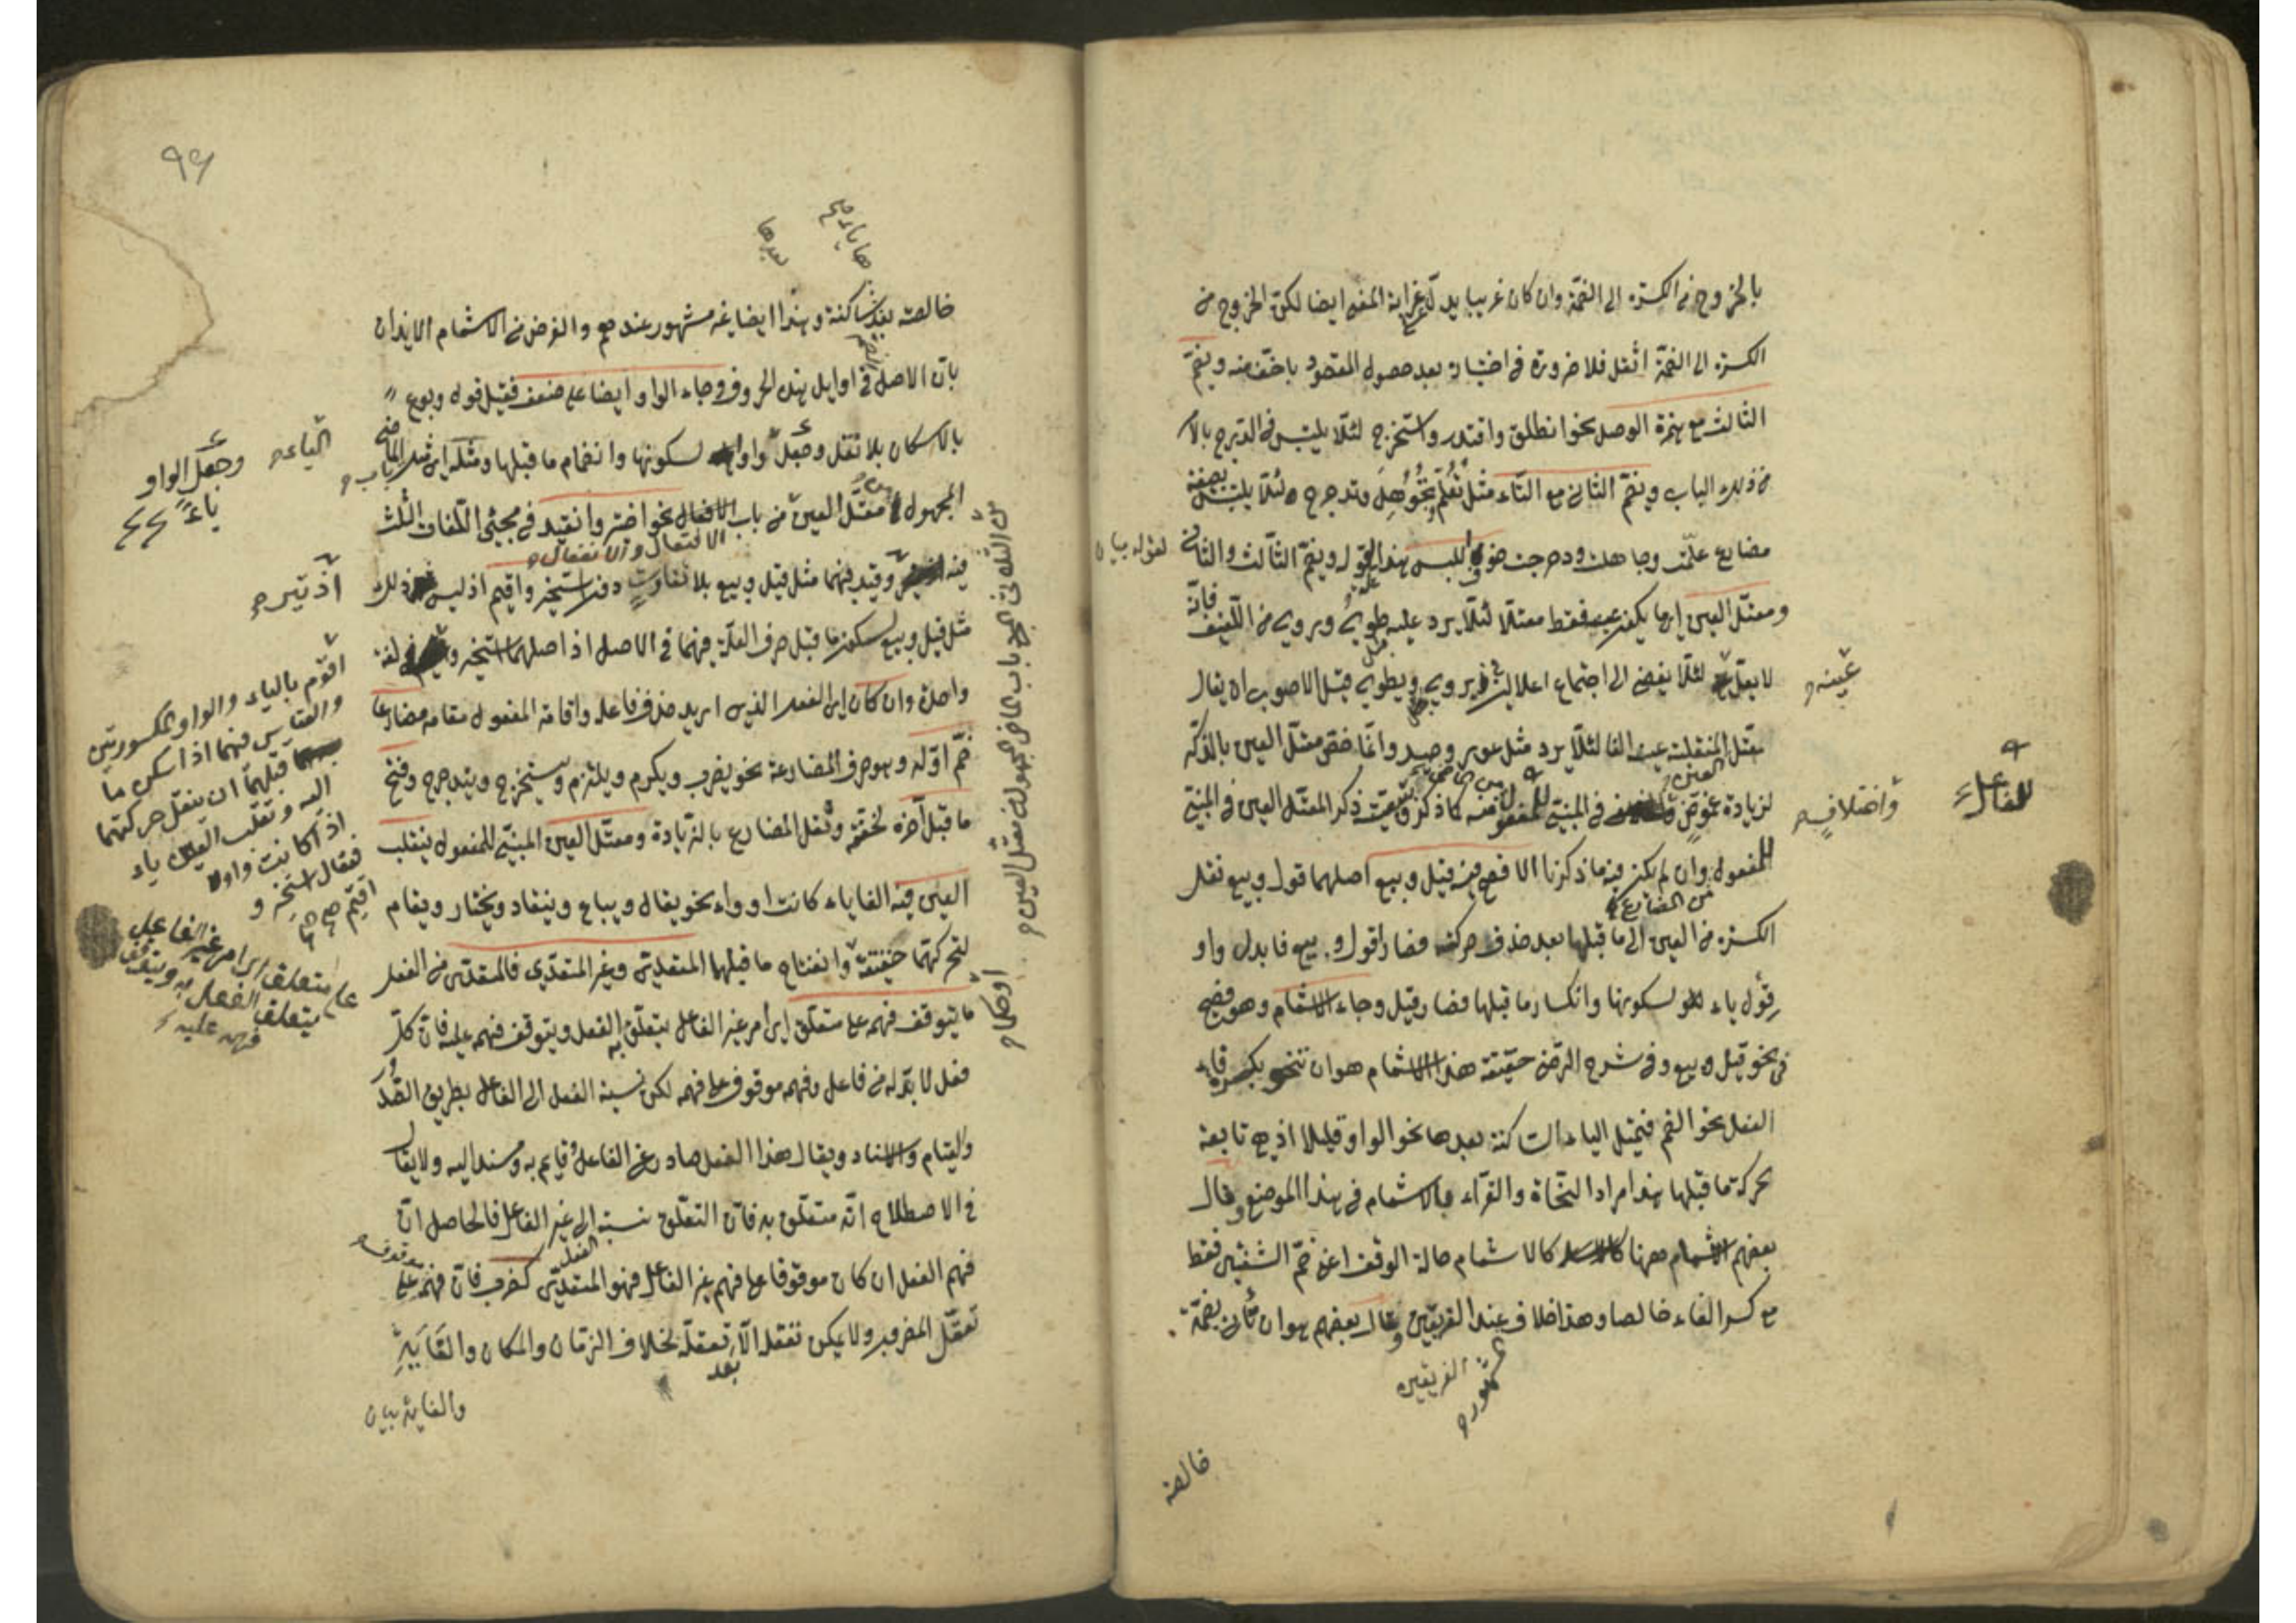 بالخروج من الكسرة الى الضمة وان كان غريبا يدل على غرابة المعنى ايضا لكن الخروج من
الكسرة الى الضمة اثقل فلا ضرورة فى اختياره بعد حصول المقصود باخف منه ويضم
الثالث مع همزة الوصل نحو انطلق واقتدر واستخرج لئلا يلتبس فى الدرج بالامر
من ذلك الباب ويضم الثانى مع التاء مثل تعلم وتجوهل وتدحرج لئلا يلتبس بصيغة
مضارع علمت وجاهلت ودحرجت خوف اللبس هذا القول ويضم الثالث والثانى
لقوله بيان
ومعتل العين اى ما يكون عينه فقط معتلا لئلا يرد عليه طوى وروى من اللفيف فانه
لا يعل عينه لئلا يفضى الى اجتماع اعلالين فى يروى ويطوى قيل الاصوب ان يقال
معتل المنقلبة عينه الفا لئلا يرد مثل عور وصيد وانما خص معتل العين بالذكر
لزيادة غموض واختلاف فى المبنى للمفعول منه كما ذكر ذكر المعتل العين فى المبنى
للفاعل
للمفعول وان لم يكن فيه ما ذكرنا الافصح فيه قيل وبيع اصلهما قول وبيع نقل
الكسرة من العين الى ما قبلها بعد حذف حركته فصار قول وبيع فابدل واو
قول ياء لسكونها وانكسار ما قبلها فصار قيل وجاء الاشمام وهو فصيح
فى نحو قيل وبيع وفى شرح الرضى حقيقة هذا الاشمام هو ان تنحو بكسرة فاء
الفعل نحو الضم فتميل الياء الساكنة بعدها نحو الواو قليلا اذ هى تابعة
لحركة ما قبلها هذا مراد النحاة والقراء بالاشمام فى هذا الموضع وقال
بعضهم الاشمام ههنا كالاشمام حالة الوقف اعنى ضم الشفتين فقط
مع كسر الفاء خالصا وهذا خلاف عند الفريقين وقال بعضهم هو ان تأتى بضمة
المشهور
الفريقين
خالصة
٩٦
خالصة بعدها ياء ساكنة وهذا ايضا غير مشهور عندهم والغرض من الاشمام الايذان
بان الاصل الضم فى اوايل هذه الحروف وجاء الواو ايضا على ضعف فقيل قول وبوع
بالاسكان بلا نقل وجعل الياء واوا لسكونها وانضمام ما قبلها ومثله اى مثل باب الماضى
وجعل الواو
ياء
المجهول من معتل العين من باب الافتعال والانفعال نحو اختير وانقيد فى مجيئ اللغات الثلث
فيه اذ تير وقيد فيهما مثل قيل وبيع بلا تفاوت دون استخير واقيم اذ ليس ذلك
مثل قيل وبيع لسكون ما قبل حرف العلة فيهما فى الاصل اذ اصلهما استخير واقوم لغة
اقوم بالياء والواو المكسورتين
والقياس فيهما اذا سكن ما
قبلهما ان ينقل حركتهما
اليه وتقلب العين ياء
اذا كانت واوا
فقال استخير و
اقيم
واحدة وان كان اى الفعل الذى اريد حذف فاعله واقامة المفعول مقامه مضارعا
ضم اوله وهو حرف المضارعة نحو يضرب ويكرم ويلتزم ويستخرج ويتدحرج وفتح
ما قبل آخره لخفته وثقل المضارع بالزيادة ومعتل العين المبنى للمفعول ينقلب
العين فيه الفا ياء كانت او واو نحو يقال ويباع وينقاد ويختار ويقام
لتحركهما حقيقة وانفتاح ما قبلهما المتعدى وغير المتعدى فالمتعدى من الفعل
او حكما
ما يتوقف فهمه على متعلق اى امر غير الفاعل يتعلق به الفعل ويتوقف فهمه عليه فان كل
على متعلق اى امر غير الفاعل
يتعلق الفعل به ويتوقف
فهمه عليه
فعل لا بد له من فاعل وفهمه موقوف على فهمه لكن نسبة الفعل الى الفاعل بطريق الصدور
والقيام والاسناد ويقال هذا الفعل صادر عن الفاعل وقايم به ومسند اليه ولا يقال
فى الاصطلاح انه متعلق به فان التعلق نسبة الى غير الفاعل فالحاصل ان
فهم الفعل ان كان موقوفا على فهم غير الفاعل فهو المتعدى كضرب فان فهمه موقوف على
تعقل المضروب ولا يمكن تعقله الا بعد تعقله بخلاف الزمان والمكان والغاية
والغاية بيان